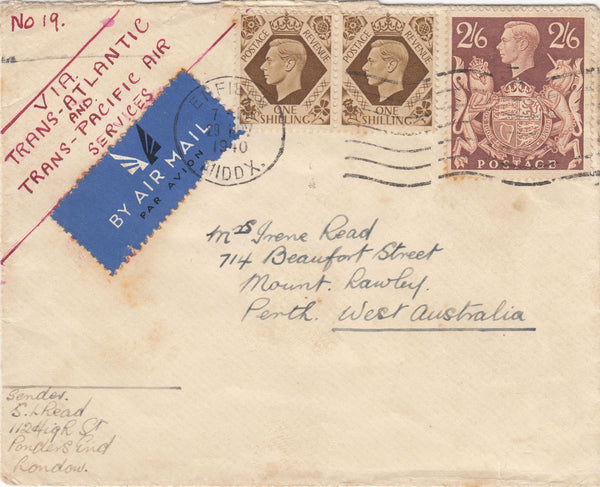 No 19.
VIA
TRANS-ATLANTIC
AND
TRANS-PACIFIC AIR
SERVICES
BY AIR MAIL
PAR AVION
POSTAGE REVENUE
ONE
SHILLING
POSTAGE REVENUE
ONE
SHILLING
2/6 2/6
POSTAGE
ENFIELD
7
1940
MIDDX.
Mrs Irene Read
714 Beaufort Street
Mount. Rawley.
Perth. West Australia
Sender.
S. L. Read
112 High St
Ponders End
London.